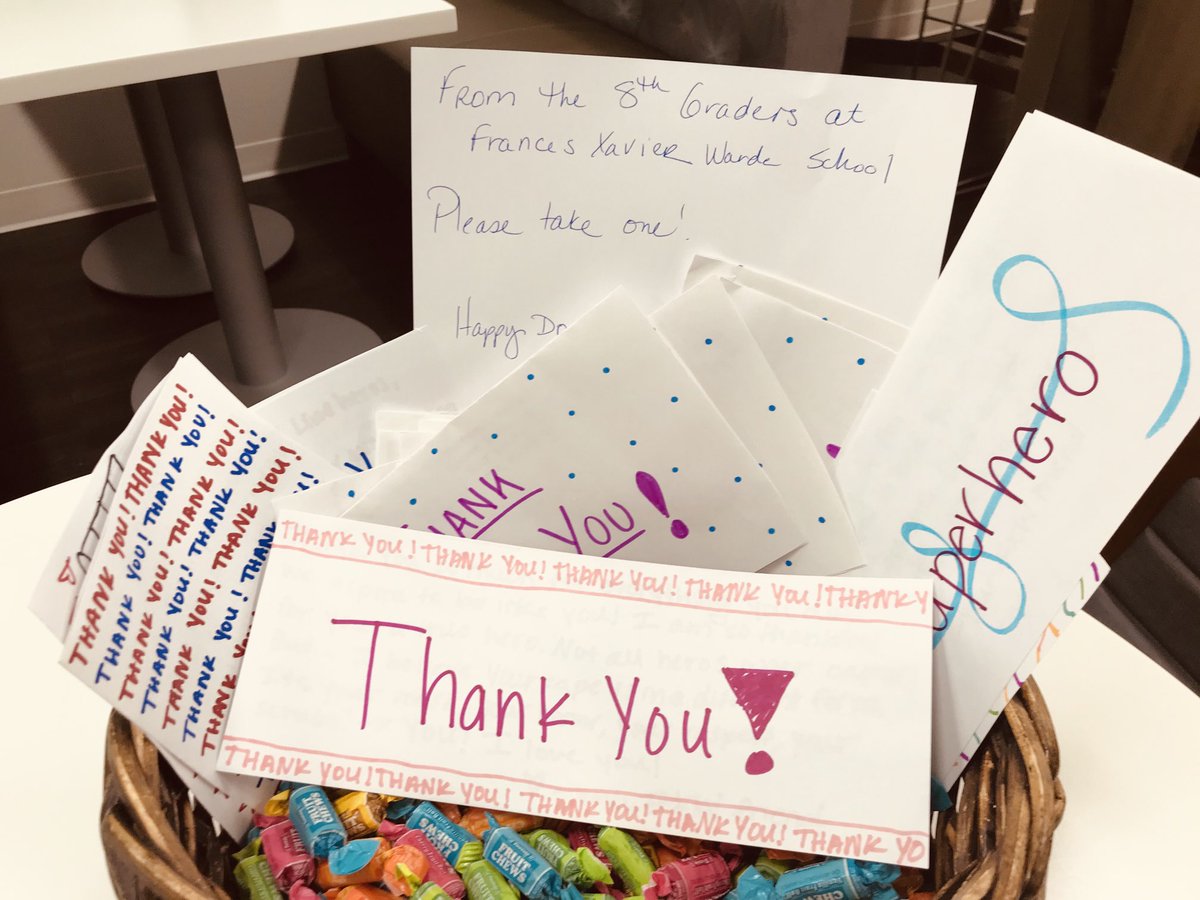 From the 8th Graders at
Frances Xavier Warde School
Please take one!
Happy Dr
THANK YOU! THANK YOU!
THANK YOU! THANK YOU!
THANK YOU! THANK YOU!
THANK YOU! THANK YOU!
THANK YOU! THANK YOU!
THANK YOU! THANK
THANK
YOU!
uperhero
THANK YOU! THANK YOU! THANK YOU! THANK YOU! THANK Y
Thank You!
THANK YOU! THANK YOU! THANK YOU! THANK YOU! THANK YO
FRUIT CHEWS
FRUIT CHEWS
FRUIT CHEWS